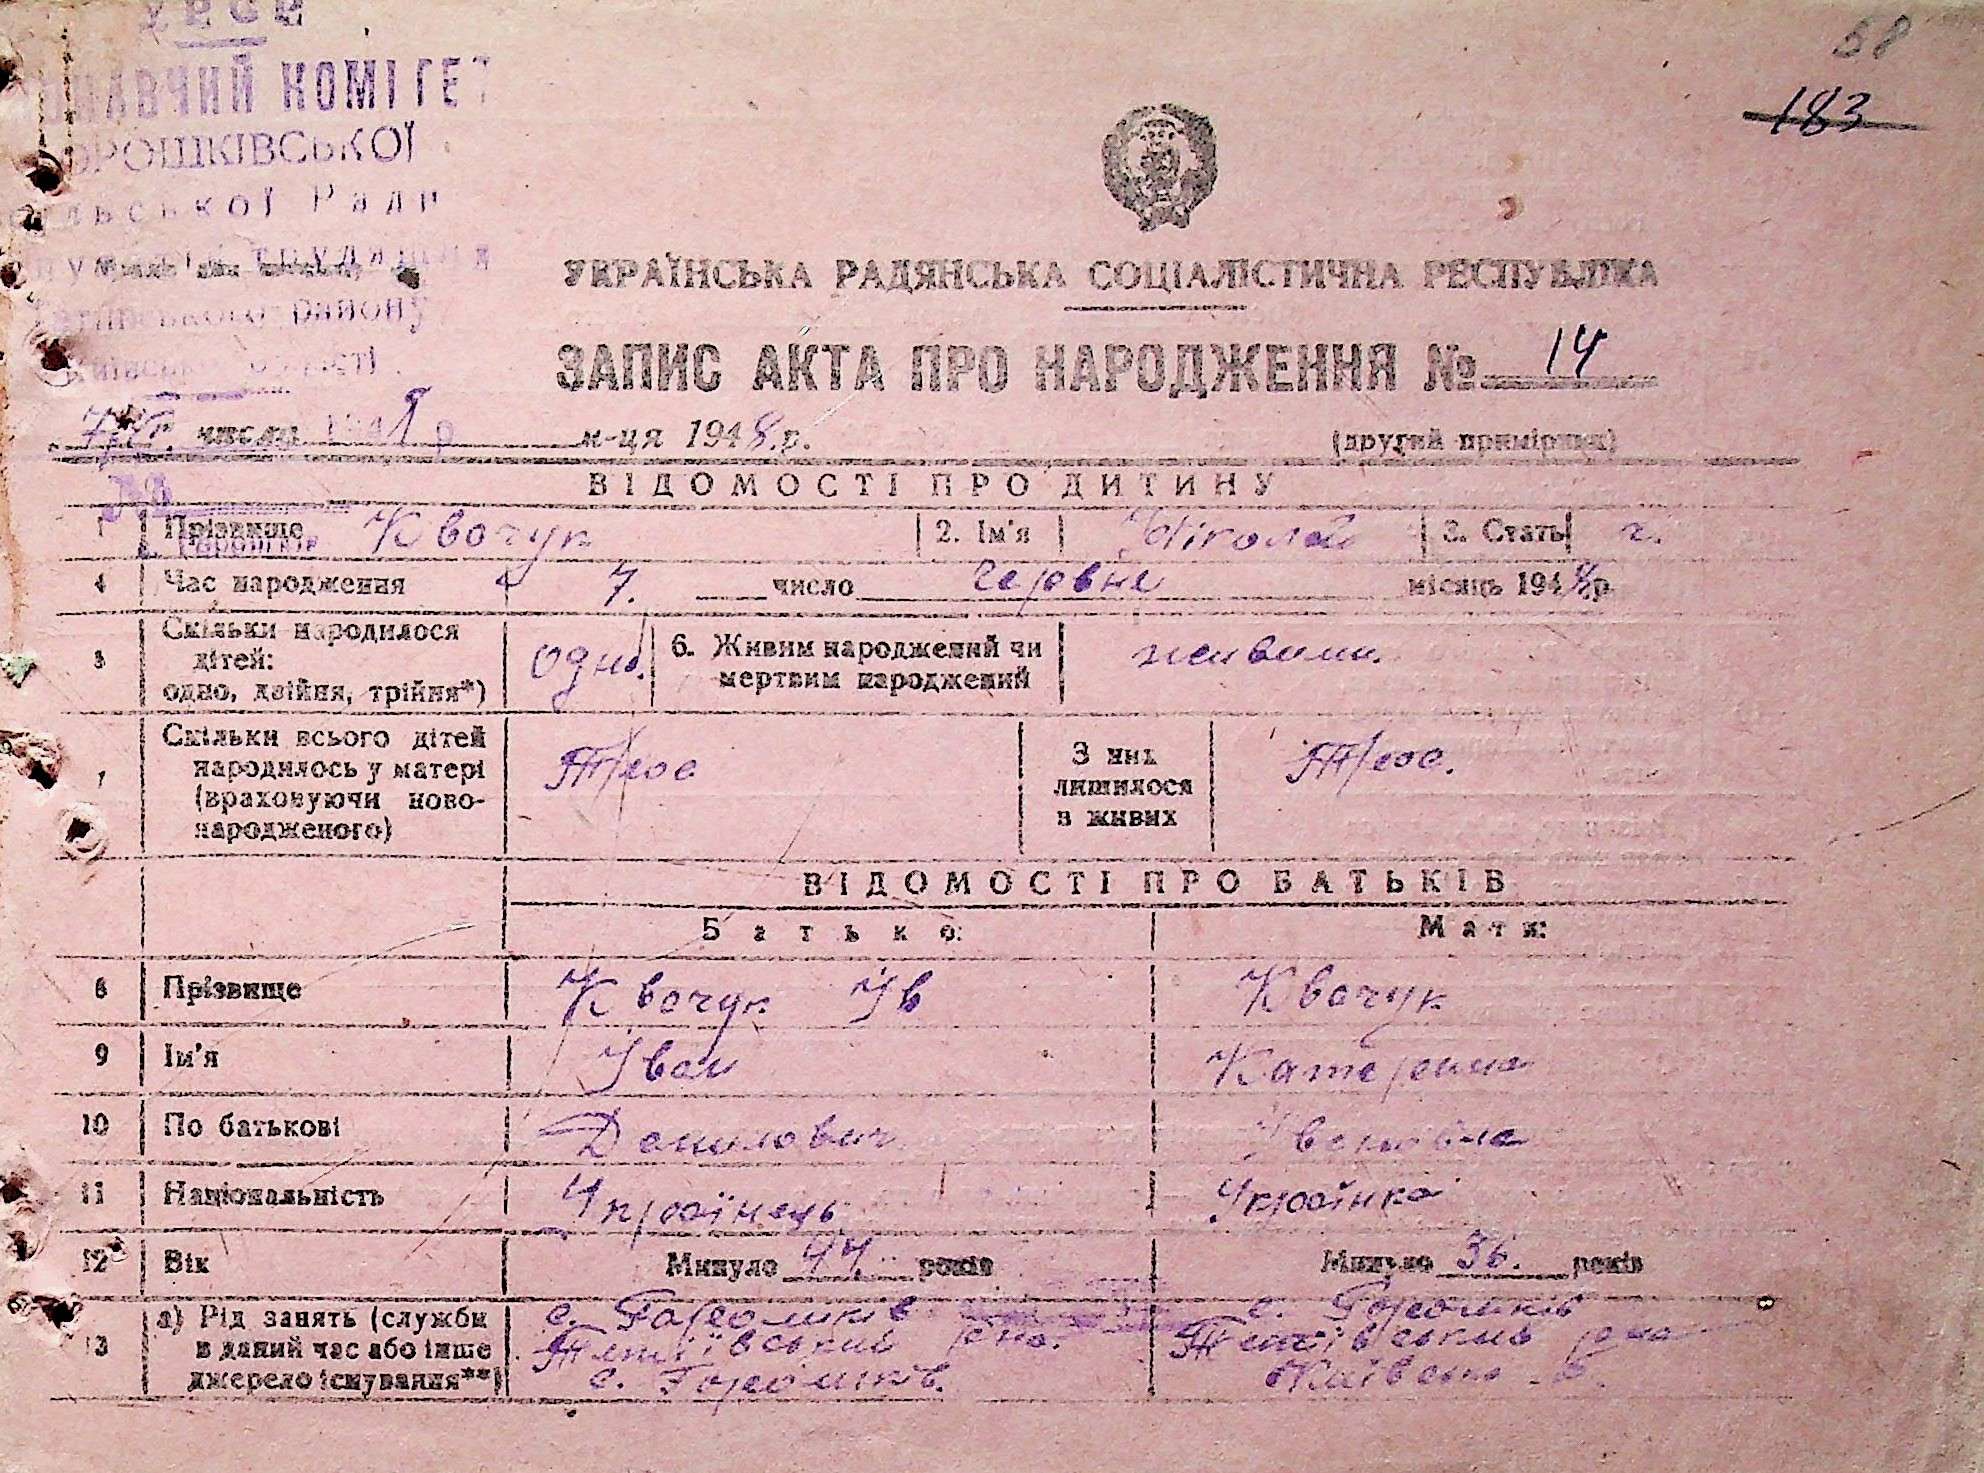 УРСР
ВИКОНАВЧИЙ КОМІТЕТ
ГОРОШКІВСЬКОЇ
Сільської Ради
депутатів трудящих
Тетіївського району
Київської області
58
183
УКРАЇНСЬКА РАДЯНСЬКА СОЦІАЛІСТИЧНА РЕСПУБЛІКА
ЗАПИС АКТА ПРО НАРОДЖЕННЯ № 14
число м-ця 1948 р. (другий примірник)
ВІДОМОСТІ ПРО ДИТИНУ
1 Прізвище Квочук 2. Ім'я Ніколай 3. Стать ч.
4 Час народження 7. число червня місяць 1948 р.
5 Скільки народилося дітей: одно, двійня, трійня*) одно. 6. Живим народжений чи мертвим народжений живими.
7 Скільки всього дітей народилось у матері (враховуючи новонародженого) Троє З них лишилося в живих Троє.
ВІДОМОСТІ ПРО БАТЬКІВ
Батько: Мати:
8 Прізвище Квочук Ів Квочук
9 Ім'я Іван Катерина
10 По батькові Данилович Івановна
11 Національність Українець Українка
12 Вік Минуло 44. років Минуло 36. років
13 а) Рід занять (служби в даний час або інше джерело існування**) с. Горошків с. Горошків
Тетіївський р-на. Тетіївський р-на
с. Горошків. Київська о.